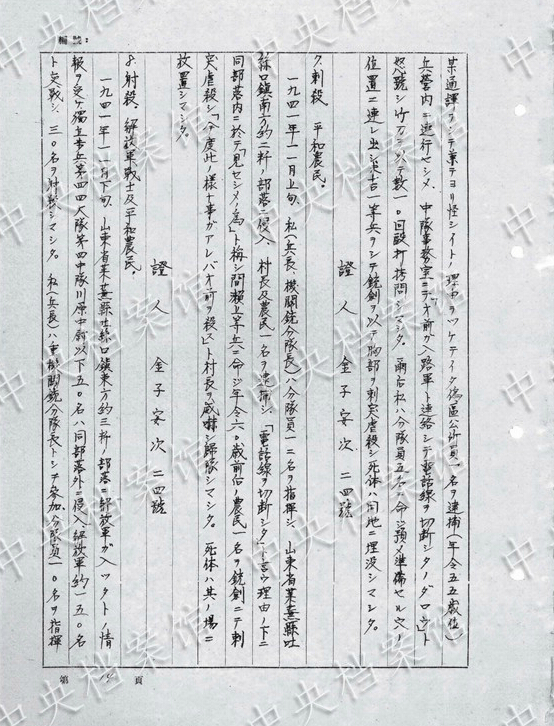 編號:
某通譯ヲシテ兼テヨリ怪シイトノ理由ヲツケテイタ偽區公所員一名ヲ逮捕(年令五五歳位)
兵営内ニ連行セシメ、中隊事務室ニテ「オ前ガ八路軍ト連絡シテ電話線ヲ切断シタノダロウ」ト
怒號シ竹刀ヲ以テ数一〇回殴打拷問シマシタ。爾后私ハ分隊員五名ニ命ジ預メ準備セル穴ノ
位置ニ連レ出シ長吉一等兵ヲシテ銃剣ヲ以テ胸部ヲ刺突虐殺シ死体ハ同地ニ埋没シマシタ。
證人 金子安次 二四號
7. 刺殺 平和農民。
一九四一年一一月上旬、私(兵長、機関銃分隊長)ハ分隊員一二名ヲ指揮シ、山東省莱蕪縣吐
絲口鎮南方約二粁ノ部落ニ侵入、村長及農民一名ヲ逮捕シ、「電話線ヲ切断シタ」ト言ウ理由ノ下ニ
同部落内ニ於テ「見セシメノ為」ト侮シ問瀬上等兵ニ命ジ年令六〇歳前后ノ農民一名ヲ銃剣ニテ刺
突虐殺シ「今度此ノ様ナ事ガアレバオ前ヲ殺ス」ト村長ヲ威嚇シ歸隊シマシタ。死体ハ其ノ場ニ
放置シマシタ。
證人 金子安次 二四號
8. 射殺、解放軍戦士及平和農民。
一九四一年一一月下旬、山東省莱蕪縣吐絲口鎮東方約三粁ノ部落ニ解放軍ガ入ツタトノ情
報ヲ受ケ獨立歩兵第四四大隊第四中隊川原中尉以下五〇名ハ同部落外ニ侵入、解放軍約一五〇名
ト交戦シ、三〇名ヲ射殺シマシタ。私(兵長)ハ重機関銃分隊長トシテ参加、分隊員一〇名ヲ指揮
第 頁
中央档案馆